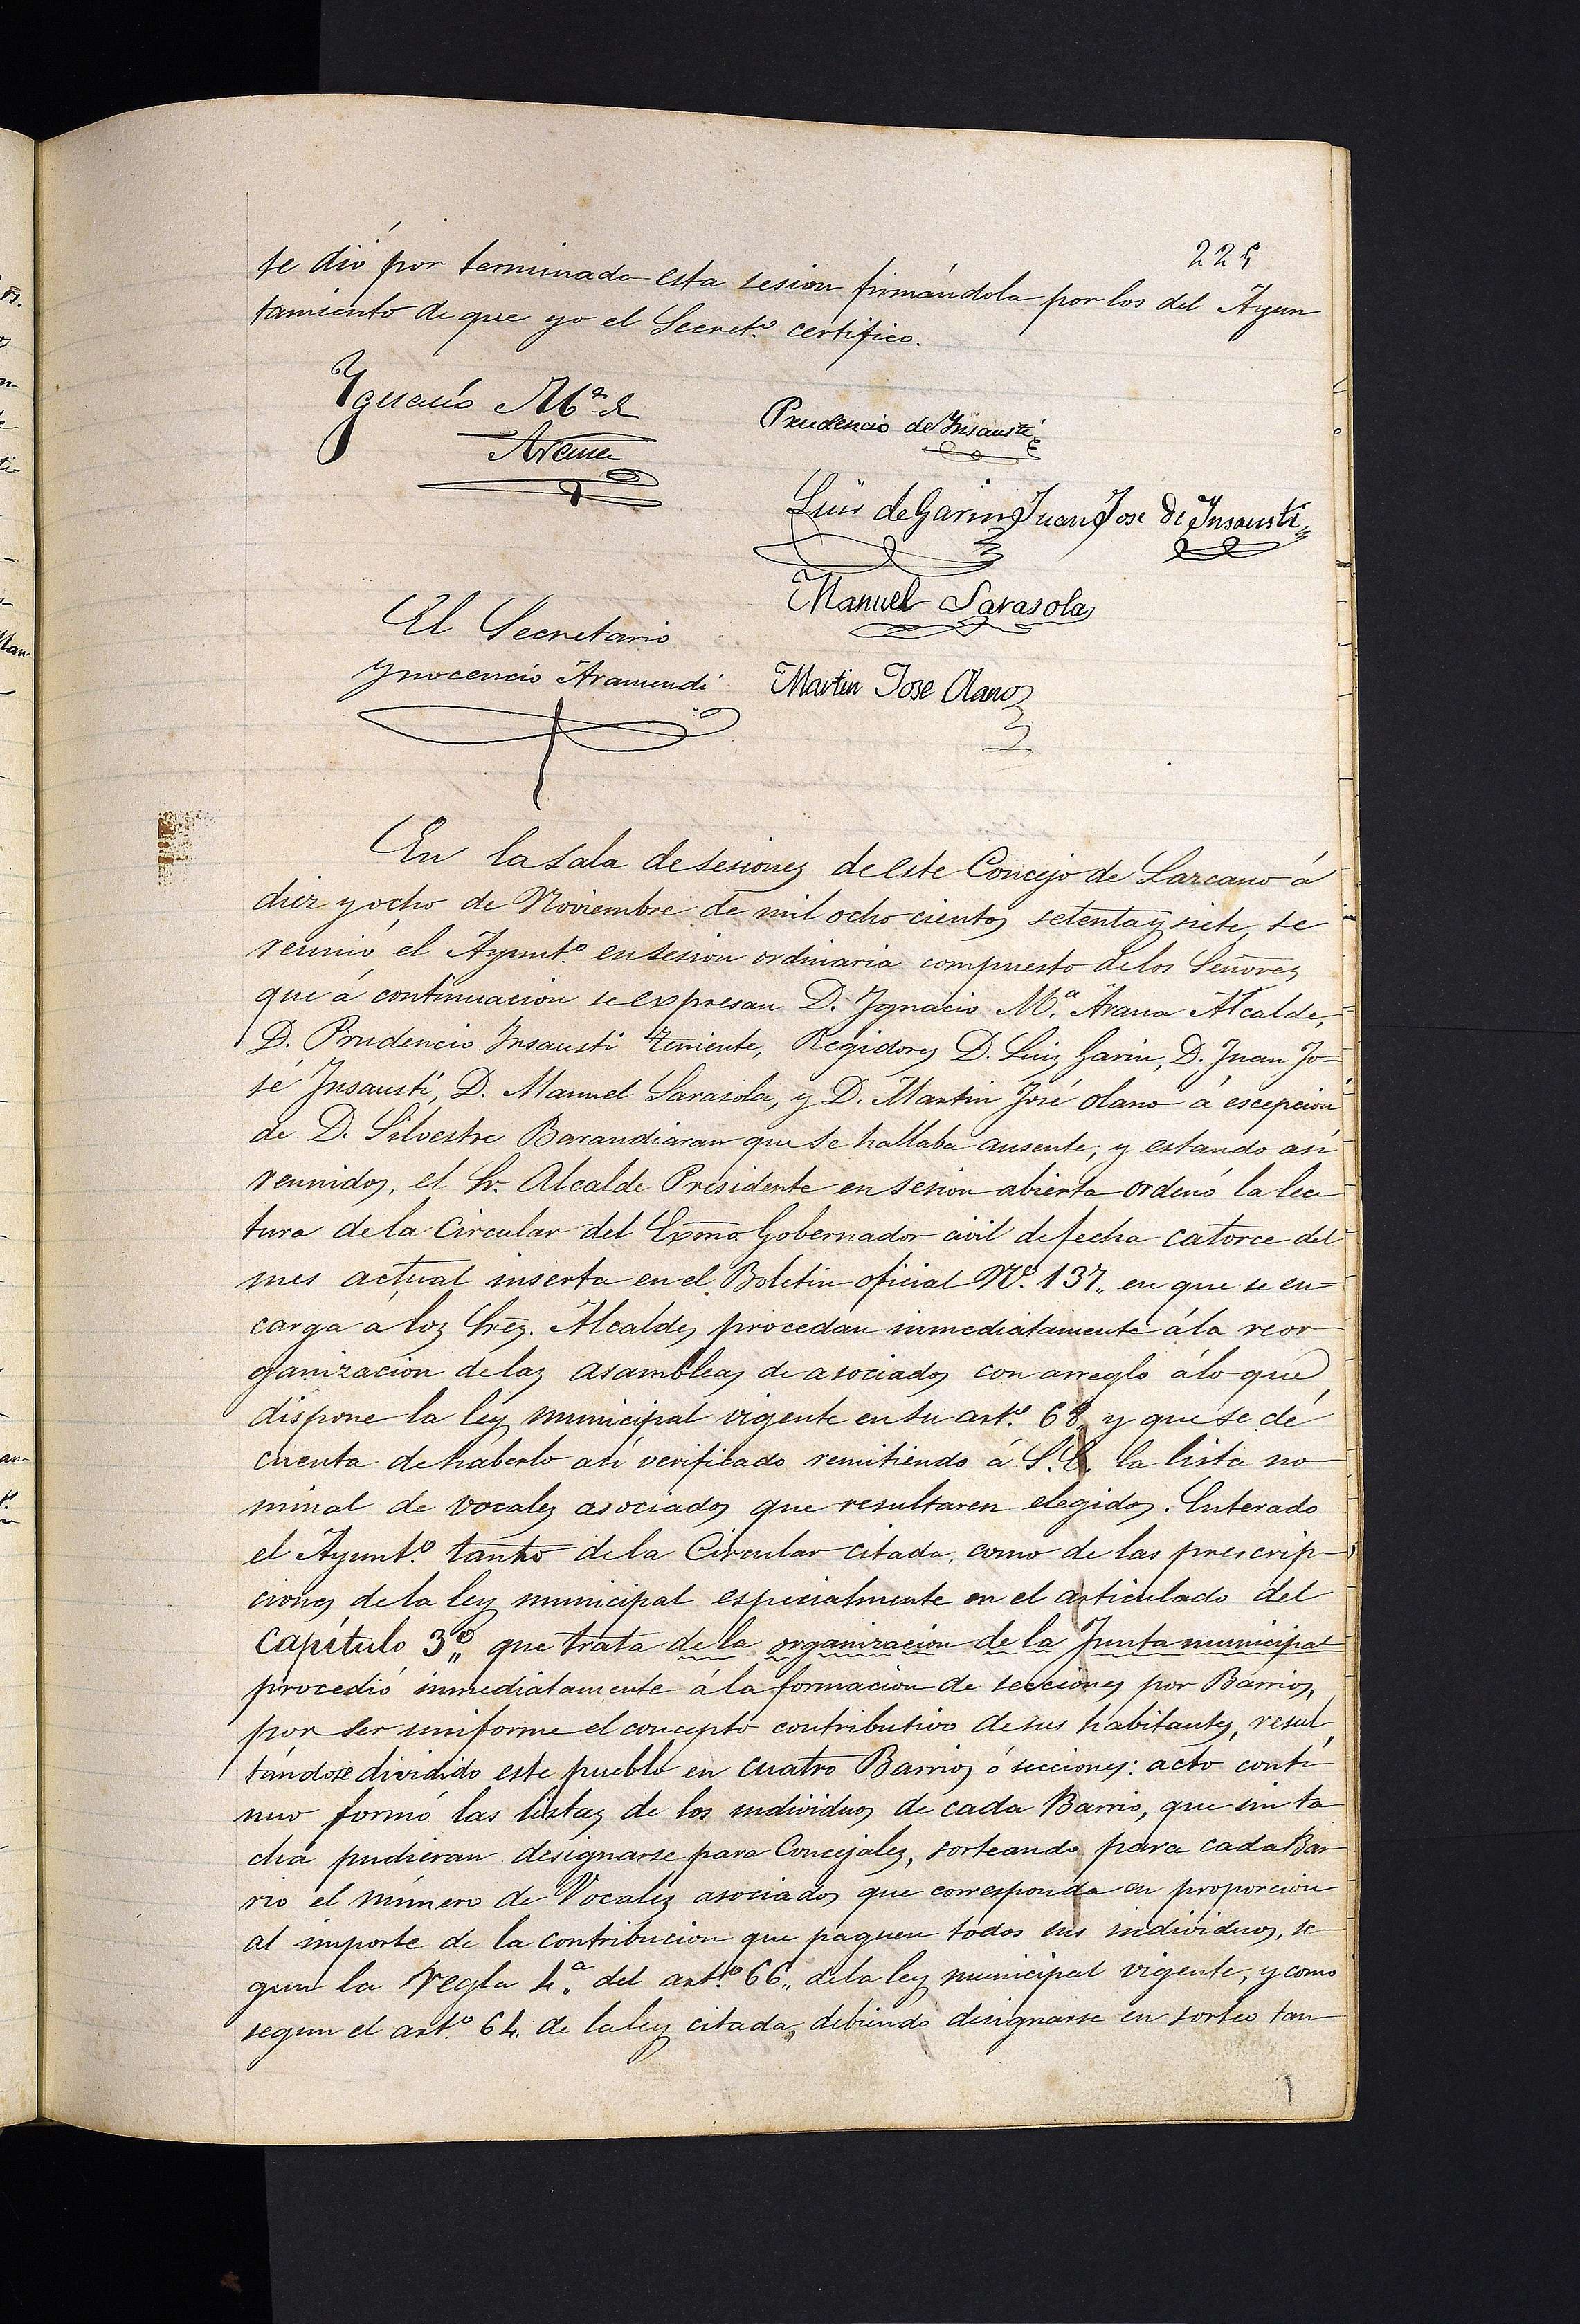 225
se dió por terminada esta sesion firmándola por los del Ayun
tamiento de que yo el Secret.º certifico.
Ygnacio M.ª de
Arana
Prudencio de Insausti
Luis de Garin Juan Jose de Insausti
Manuel Sarasola
El Secretario
Ynocencio Aramendi
Martin Jose Olano
En la sala de sesiones de este Concejo de Lazcano á
diez y ocho de Noviembre de mil ocho cientos setenta y siete, se
reunió el Ayunt.º en sesion ordinaria compuesto de los Señores
que á continuacion se expresan D. Ignacio M.ª Arana Alcalde,
D. Prudencio Insausti Teniente, Regidores D. Luis Garin, D. Juan Jo=
sé Insausti, D. Manuel Sarasola, y D. Martin José Olano á escepcion
de D. Silvestre Barandiaran que se hallaba ausente; y estando asi
reunidos, el Sr. Alcalde Presidente en sesion abierta ordenó la lec
tura de la Circular del Exmo. Gobernador civil de fecha catorce del
mes actual inserta en el Boletin oficial Nº. 137,, en que se en=
carga á los Sres. Alcaldes procedan inmediatamente á la reor
ganizacion de las asambleas de asociados con arreglo á lo que
dispone la ley municipal vigente en su art.º 68,, y que se dé
cuenta de haberlo asi verificado remitiendo á S.E. la lista no
minal de vocales asociados que resultaren elegidos. Enterado
el Ayunt.º tanto de la Circular citada, como de las prescrip
ciones de la ley municipal especialmente en el articulado del
Capítulo 3º,, que trata de la organizacion de la Junta municipal
procedió inmediatamente á la formacion de secciones por Barrios,
por ser uniforme el concepto contributivo de sus habitantes, resul
tándose dividido este pueblo en cuatro Barrios ó secciones: acto conti
nuo formó las listas de los individuos de cada Barrio, que sin ta
cha pudieran designarse para Concejales, sorteando para cada Bar
rio el número de Vocales asociados que corresponda en proporcion
al importe de la contribucion que paguen todos sus individuos, se
gun la regla 4.ª del art.º 66,, de la ley municipal vigente, y como
segun el art.º 64. de la ley citada, debiendo designarse en sorteo tan